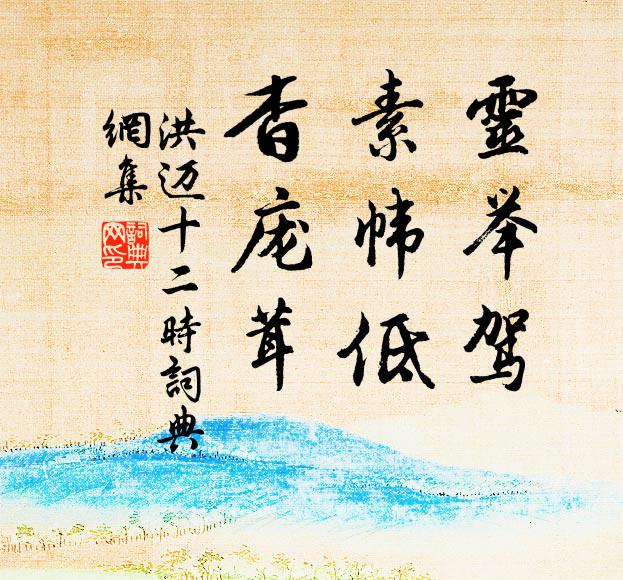 靈举駕
素帏低
杳庞茸
洪迈十二時詞典
網集
詞典
网印